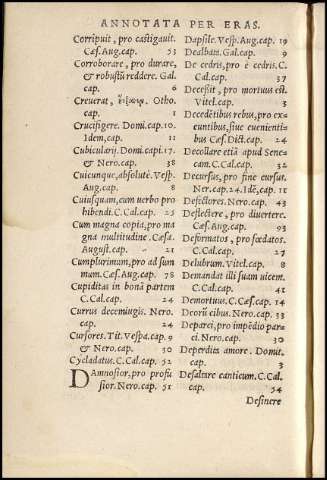 ANNOTATA PER ERAS.
Corripuit, pro castigauit.
Cæs. Aug. cap. 51
Corroborare, pro durare,
& robustũ reddere. Gal.
cap. 6
Creuerat, Otho.
cap. 1
Crucifigere. Domi. cap. 10.
Idem, cap. 11
Cubicularij. Domi. capi. 17.
& Nero. cap. 38
Cuicunque, absolutè. Vesp.
Aug. cap. 8
Cuiusquam, cum uerbo pro
hibendi. C. Cal. cap. 25
Cum magna copia, pro ma
gna multitudine. Cæsa.
August. cap. 21
Cumplurimum, pro ad sum
mum. Cæs. Aug. cap. 78
Cupiditas in bonã partem
C. Cal. cap. 24
Currus decemiugis. Nero.
cap. 24
Cursores. Tit. Vespa. cap. 9
& Nero. cap. 30
Cycladatus. C. Cal. cap. 52
DAmnosior, pro profu
sior. Nero. cap. 51
Dapsile. Vesp. Aug. cap. 19
Dealbata. Gal. cap. 9
De cedris, pro è cedris. C.
Cal. cap. 37
Decessit, pro mortuus est.
Vitel. cap. 3
Decedẽtibus rebus, pro ex
euntibus, siue euenienti
bus Cæs. Dict. cap. 24
Decollare etiã apud Sene
cam. C. Cal. cap. 32
Decursus, pro fine cursus.
Ner. cap. 24. Idẽ, cap. 11
Defectores. Nero. cap. 43
Deflectere, pro diuertere.
Cæs. Aug. cap. 93
Deformatos, pro fœdatos.
C. Cal. cap. 27
Delubrum. Vitel. cap. 8
Demandat illi suam uicem.
C. Cal. cap. 41
Demortuus. C. Cæs. cap. 14
Deorũ cibus. Nero. cap. 33
Deparci, pro impẽdio par-
ci. Nero. cap. 30
Deperdita amore. Domit.
cap. 3
Desaltare canticum. C. Cal.
cap. 54
Desinere